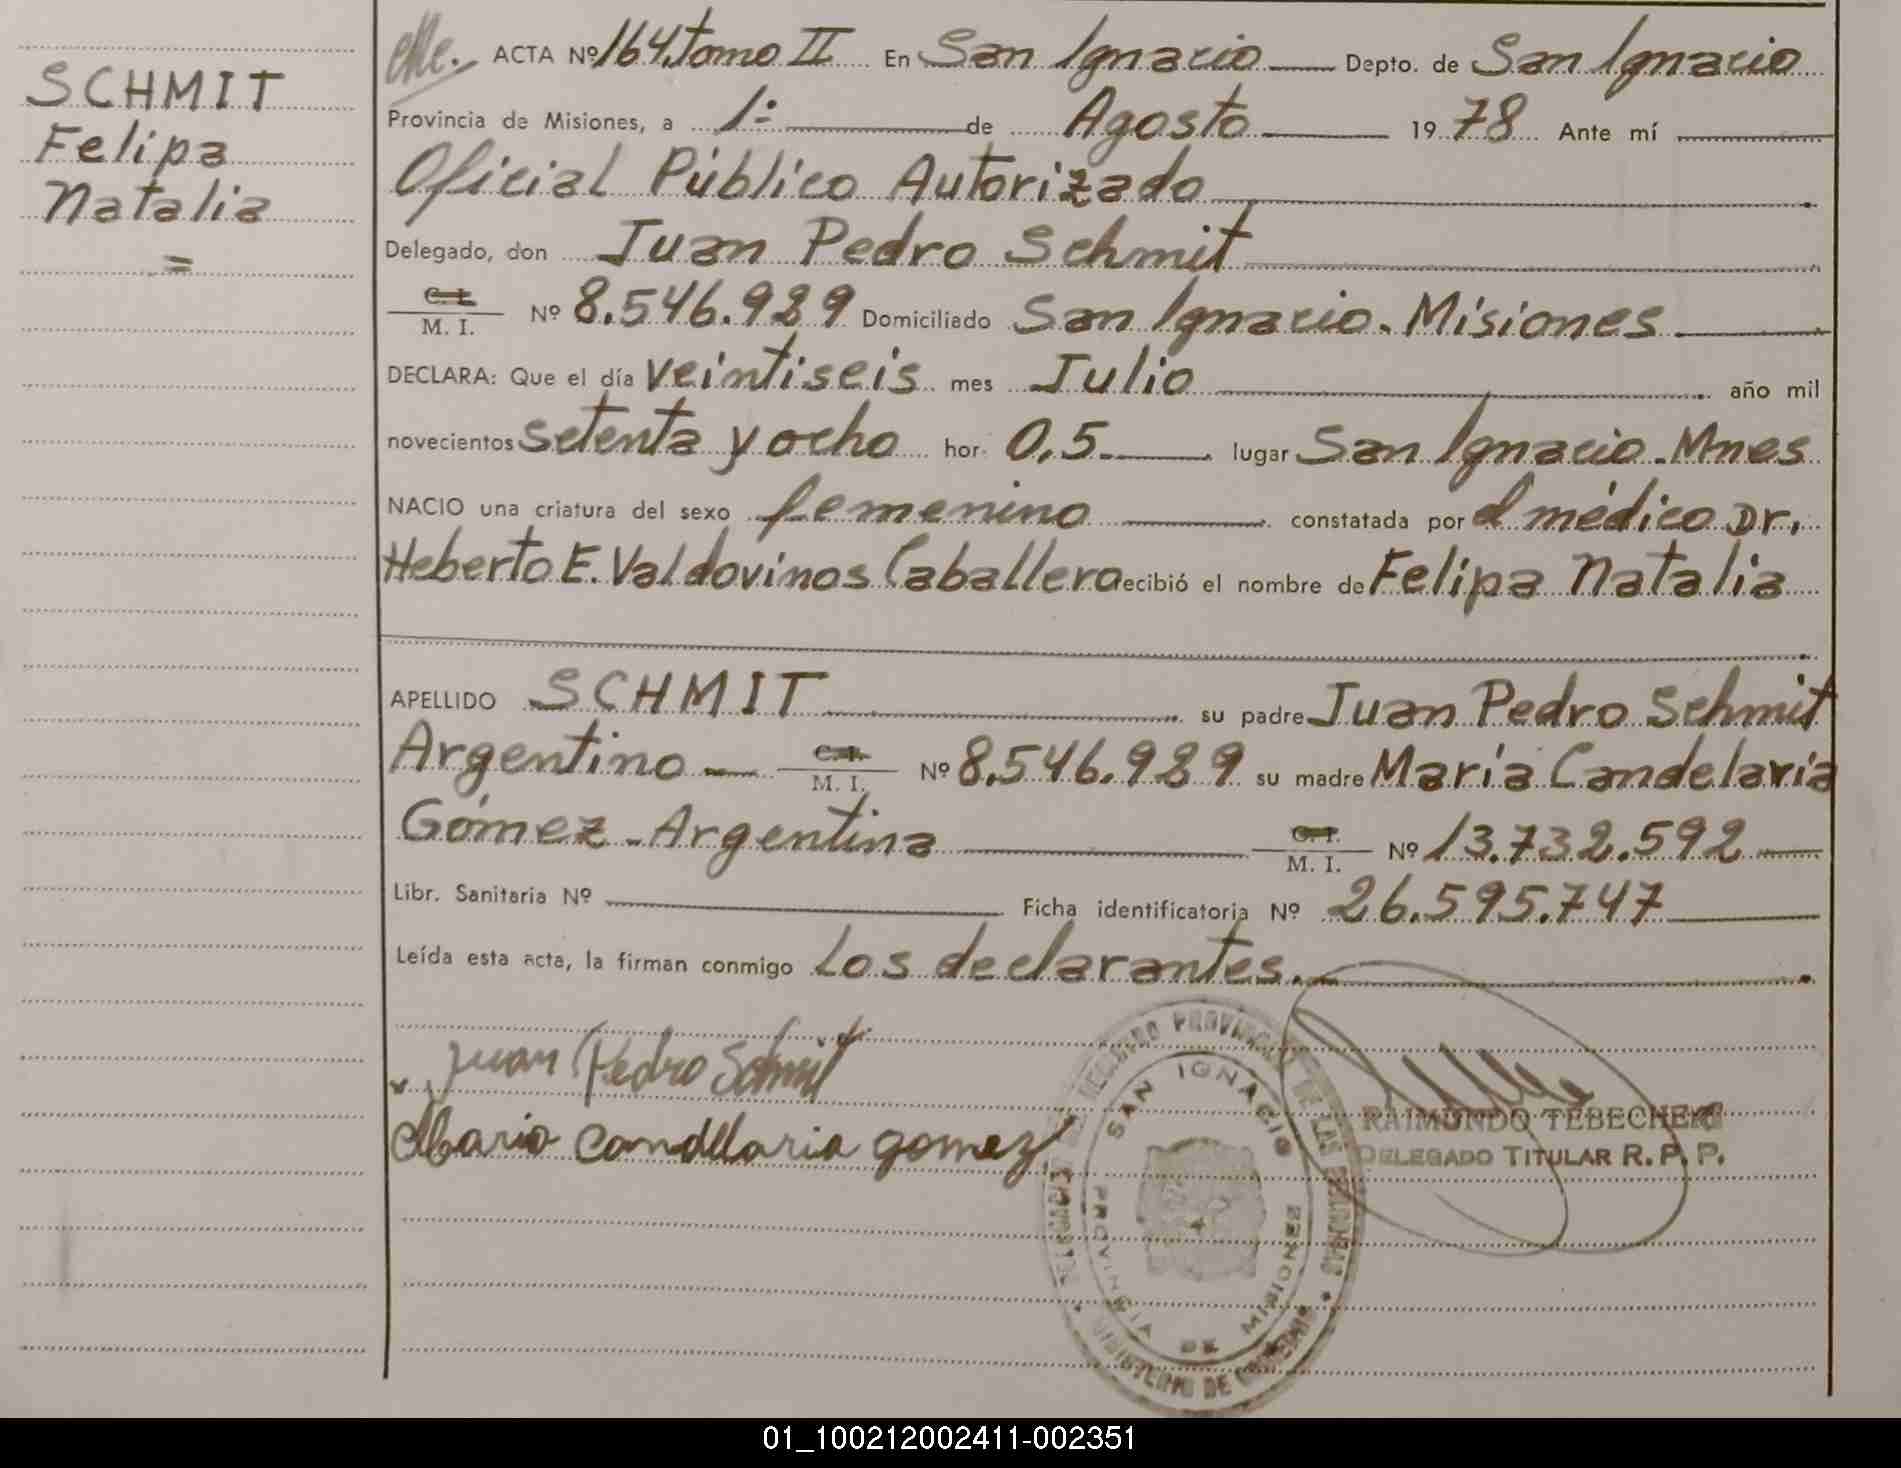 SCHMIT
Felipa
Natalia
=
ACTA Nº 164, tomo II En San Ignacio Depto. de San Ignacio
Provincia de Misiones, a 1º de Agosto 1978 Ante mí
Oficial Público Autorizado
Delegado, don Juan Pedro Schmit
C. I. M. I. Nº 8.546.989 Domiciliado San Ignacio. Misiones
DECLARA: Que el día veintiseis mes Julio año mil
novecientos setenta y ocho hor. 0,5 lugar San Ignacio. Mnes
NACIO una criatura del sexo femenino constatada por el médico Dr.
Heberto E. Valdovinos Caballero recibió el nombre de Felipa Natalia
APELLIDO SCHMIT su padre Juan Pedro Schmit
Argentino C. I. M. I. Nº 8.546.989 su madre María Candelaria
Gómez - Argentina C. I. M. I. Nº 13.732.592
Libr. Sanitaria Nº Ficha identificatoria Nº 26.595.747
Leída esta acta, la firman conmigo los declarantes.
Juan Pedro Schmit
Maria Candelaria gomez
SAN IGNACIO
PROVINCIA DE MISIONES
RAIMUNDO TEBECHERI
DELEGADO TITULAR R. P. P.
01_100212002411-002351